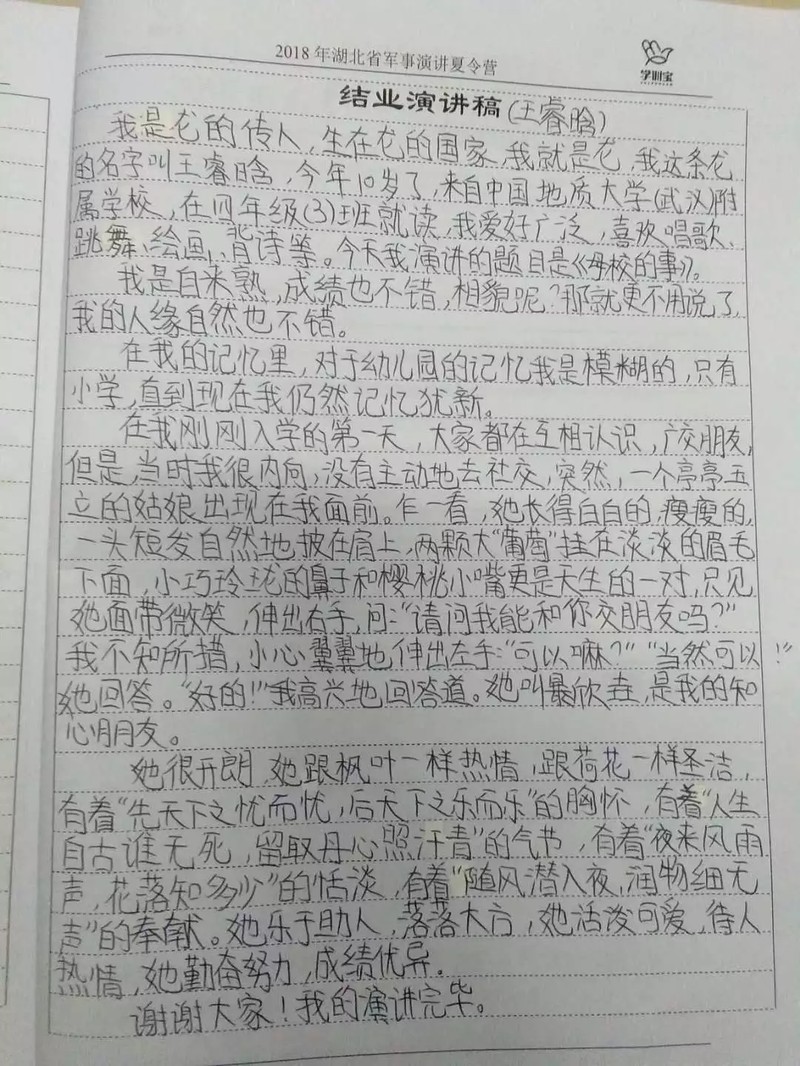 2018年湖北省军事演讲夏令营
学训宝
结业演讲稿(王睿晗)
我是龙的传人，生在龙的国家，我就是龙，我这条龙
的名字叫王睿晗，今年10岁了，来自中国地质大学(武汉)附
属学校，在四年级(3)班就读，我爱好广泛，喜欢唱歌、
跳舞、绘画、背诗等。今天我演讲的题目是《母校的事》。
我是自来熟，成绩也不错，相貌呢？那就更不用说了，
我的人缘自然也不错。
在我的记忆里，对于幼儿园的记忆我是模糊的，只有
小学，直到现在我仍然记忆犹新。
在我刚刚入学的第一天，大家都在互相认识，广交朋友，
但是，当时我很内向，没有主动地去社交，突然，一个亭亭玉
立的姑娘出现在我面前。乍一看，她长得白白的，瘦瘦的，
一头短发自然地披在肩上，两颗大“葡萄”挂在淡淡的眉毛
下面，小巧玲珑的鼻子和樱桃小嘴更是天生的一对，只见
她面带微笑，伸出右手，问：“请问我能和你交朋友吗？”
我不知所措，小心翼翼地伸出左手：“可以嘛？”“当然可以！”
她回答。“好的！”我高兴地回答道。她叫晨欣垚，是我的知
心朋友。
她很开朗，她跟枫叶一样热情，跟荷花一样圣洁，
有着“先天下之忧而忧，后天下之乐而乐”的胸怀，有着“人生
自古谁无死，留取丹心照汗青”的气节，有着“夜来风雨
声，花落知多少”的恬淡，有着“随风潜入夜，润物细无
声”的奉献。她乐于助人，落落大方，她活泼可爱，待人
热情，她勤奋努力，成绩优异。
谢谢大家！我的演讲完毕。